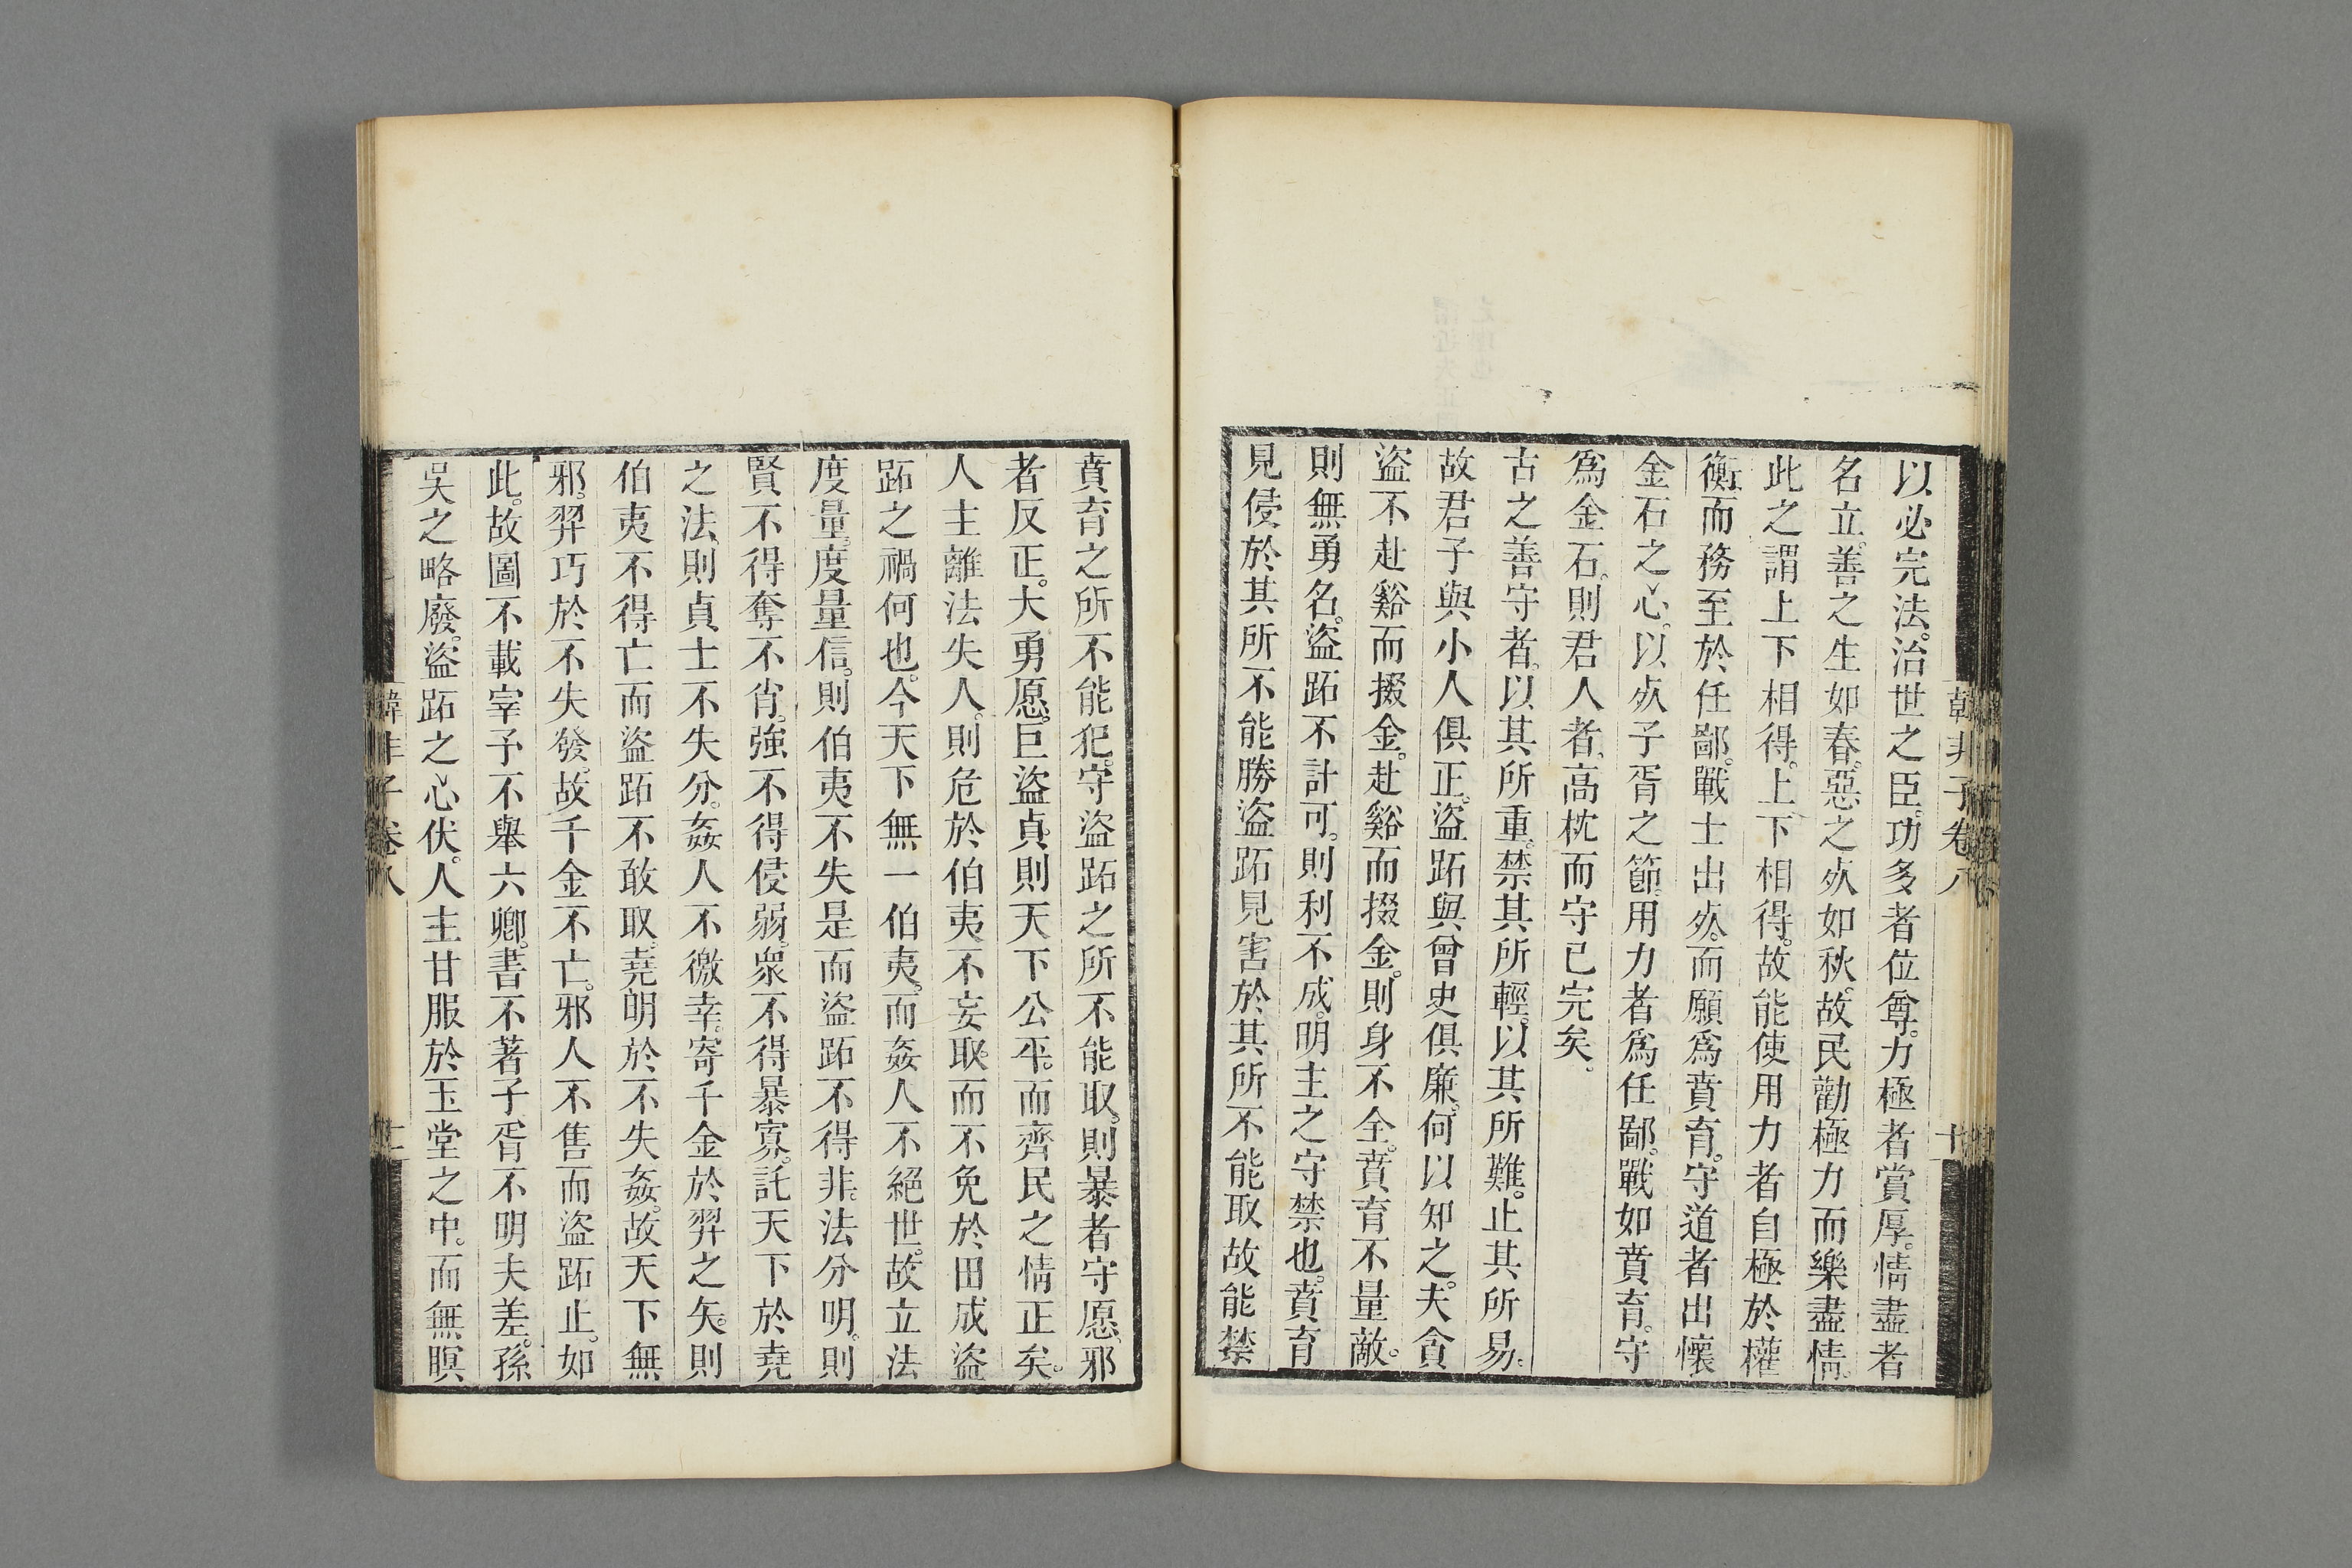 韓非子卷八
十
以必完法。治世之臣。功多者位尊。力極者賞厚。情盡者
名立。善之生如春。惡之㱙如秋。故民勸極力而樂盡情。
此之謂上下相得。上下相得。故能使用力者自極於權
衡。而務至於任鄙。戰士出㱙。而願爲賁育。守道者出懷
金石之心。以㱙子胥之節。用力者爲任鄙。戰如賁育。守
爲金石。則君人者。高枕而守已完矣。
古之善守者。以其所重。禁其所輕。以其所難。止其所易。
故君子與小人俱正。盜跖與曾史俱廉。何以知之。夫貪
盜不赴谿而掇金。赴谿而掇金。則身不全。賁育不量敵。
則無勇名。盜跖不計可。則利不成。明主之守禁也。賁育
見侵於其所不能勝盜跖見害於其所不能取故能禁
賁育之所不能犯。守盜跖之所不能取。則暴者守愿。邪
者反正。大勇愿。巨盜貞。則天下公平。而齊民之情正矣。
人主離法失人。則危於伯夷不妄取。而不免於田成盜
跖之禍何也。今天下無一伯夷。而姦人不絕世。故立法
度量。度量信。則伯夷不失是而盜跖不得非。法分明。則
賢不得奪不肖。強不得侵弱。衆不得暴寡。託天下於堯
之法。則貞士不失分。姦人不徼幸。寄千金於羿之矢。則
伯夷不得亡而盜跖不敢取。堯明於不失姦。故天下無
邪。羿巧於不失發。故千金不亡。邪人不售而盜跖止。如
此。故圖不載宰予不舉六卿。書不著子胥不明夫差。孫
吳之略廢。盜跖之心伏。人主甘服於玉堂之中。而無瞑
韓非子卷八